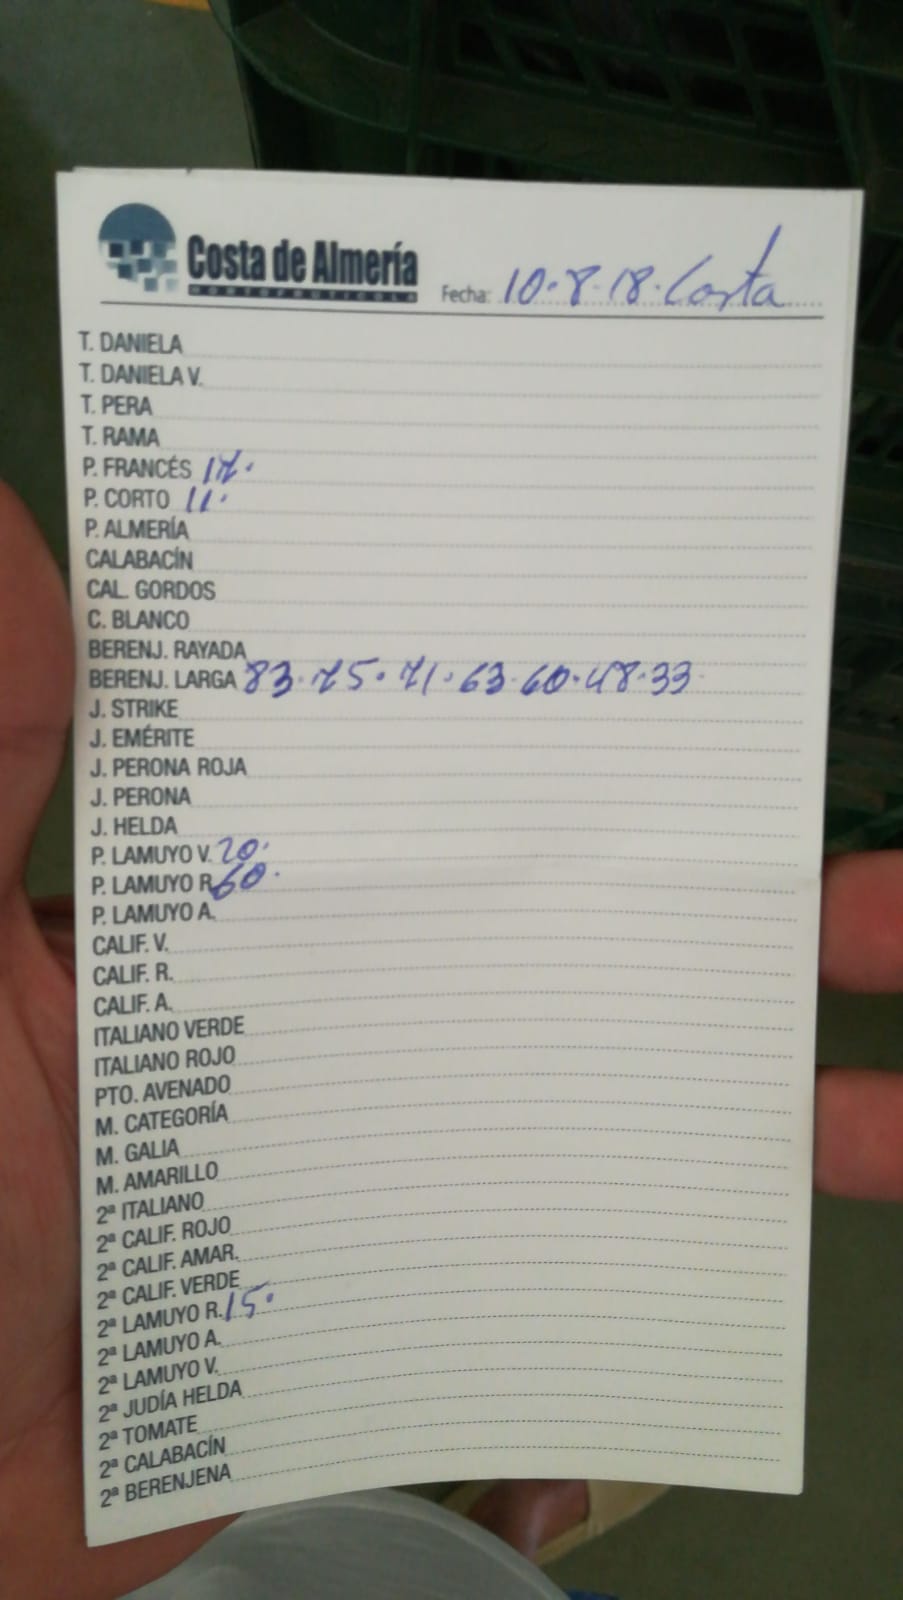 Costa de Almería
HORTOFRUTÍCOLA
Fecha: 10.8.18. Costa
T. DANIELA
T. DANIELA V.
T. PERA
T. RAMA
P. FRANCÉS 17.
P. CORTO 11.
P. ALMERÍA
CALABACÍN
CAL. GORDOS
C. BLANCO
BERENJ. RAYADA
BERENJ. LARGA 83.75.71.63.60.48.33
J. STRIKE
J. EMÉRITE
J. PERONA ROJA
J. PERONA
J. HELDA
P. LAMUYO V. 20.
P. LAMUYO R. 60.
P. LAMUYO A.
CALIF. V.
CALIF. R.
CALIF. A.
ITALIANO VERDE
ITALIANO ROJO
PTO. AVENADO
M. CATEGORÍA
M. GALIA
M. AMARILLO
2ª ITALIANO
2ª CALIF. ROJO
2ª CALIF. AMAR.
2ª CALIF. VERDE
2ª LAMUYO R. 15.
2ª LAMUYO A.
2ª LAMUYO V.
2ª JUDÍA HELDA
2ª TOMATE
2ª CALABACÍN
2ª BERENJENA